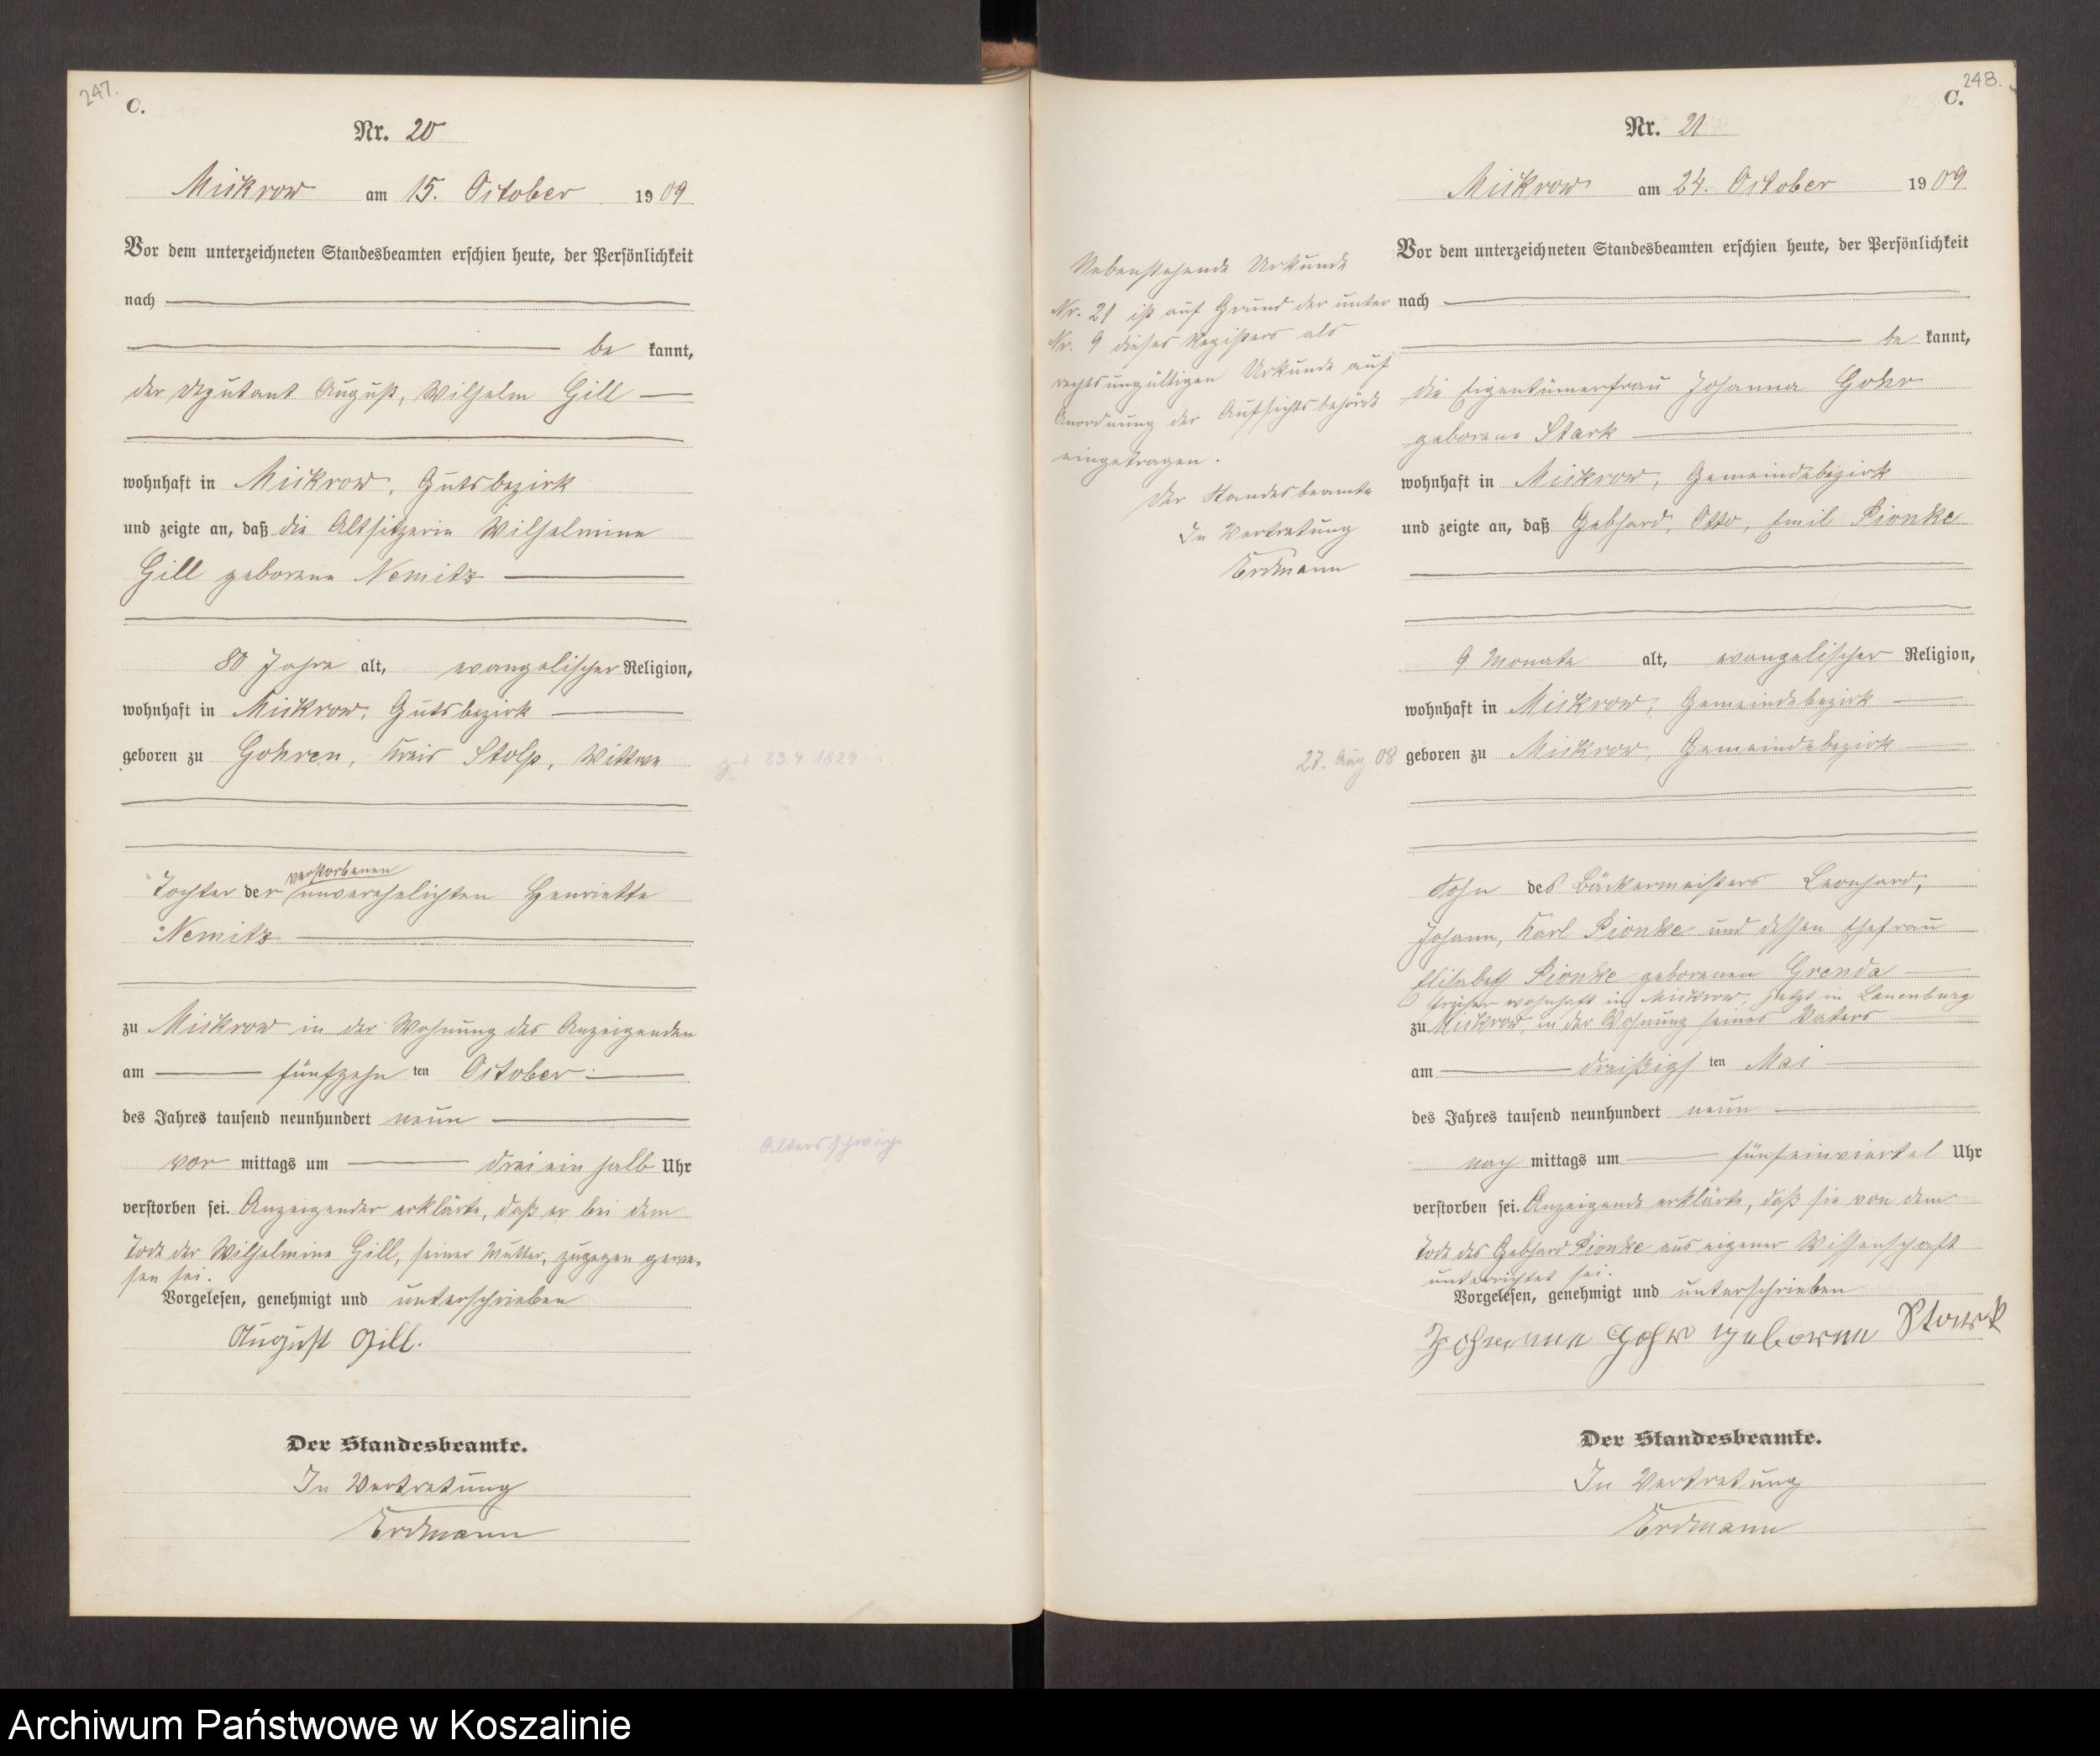 247.
C.
Nr. 20
Mickrow am 15. October 1909
Vor dem unterzeichneten Standesbeamten erschien heute, der Persönlichkeit
nach
be kannt,
der Deputant August, Wilhelm Gill
wohnhaft in Mickrow, Gutsbezirk
und zeigte an, daß die Altsitzerin Wilhelmine
Gill geborene Nemitz
80 Jahre alt, evangelischer Religion,
wohnhaft in Mickrow, Gutsbezirk
geboren zu Gohren, Kreis Stolp, Wittwe
geb 23.4.1829
verstorbenen
Tochter der unverehelichten Henriette
Nemitz
zu Mickrow in der Wohnung des Anzeigenden
am fünfzehn ten October
des Jahres tausend neunhundert neun
Altersschwäche
vor mittags um drei ein halb Uhr
verstorben sei. Anzeigender erklärte, daß er bei dem
Tode der Wilhelmine Gill, seiner Mutter, zugegen gewe-
sen sei.
Vorgelesen, genehmigt und unterschrieben
August Gill.
Der Standesbeamte.
In Vertretung
Erdmann
248.
C.
Nr. 21
Mickrow am 24. October 1909
Nebenstehende Urkunde
Nr. 21 ist auf Grund der unter
Nr. 9 dieses Registers als
rechtsungültigen Urkunde auf
Anordnung der Aufsichtsbehörde
eingetragen.
Der Standesbeamte
In Vertretung
Erdmann
Vor dem unterzeichneten Standesbeamten erschien heute, der Persönlichkeit
nach
be kannt,
die Eigentümerfrau Johanna Gohr
geborene Stark
wohnhaft in Mickrow, Gemeindebezirk
und zeigte an, daß Gebhard, Otto, Emil Pionke
9 Monate alt, evangelischer Religion,
wohnhaft in Mickrow, Gemeindebezirk
27. Aug 08 geboren zu Mickrow, Gemeindebezirk
Sohn des Bäckermeisters Leonhard,
Johann, Karl Pionke und dessen Ehefrau
Elisabeth Pionke geborenen Grenda
früher wohnhaft in Mickrow, jetzt in Lauenburg
zu Mickrow, in der Wohnung seines Vaters
am dreißigs ten Mai
des Jahres tausend neunhundert neun
nach mittags um fünfeinviertel Uhr
verstorben sei. Anzeigende erklärte, daß sie von dem
Tode des Gebhard Pionke aus eigener Wissenschaft
unterrichtet sei.
Vorgelesen, genehmigt und unterschrieben
Johanna Gohr geborene Stark
Der Standesbeamte.
In Vertretung
Erdmann
Archiwum Państwowe w Koszalinie